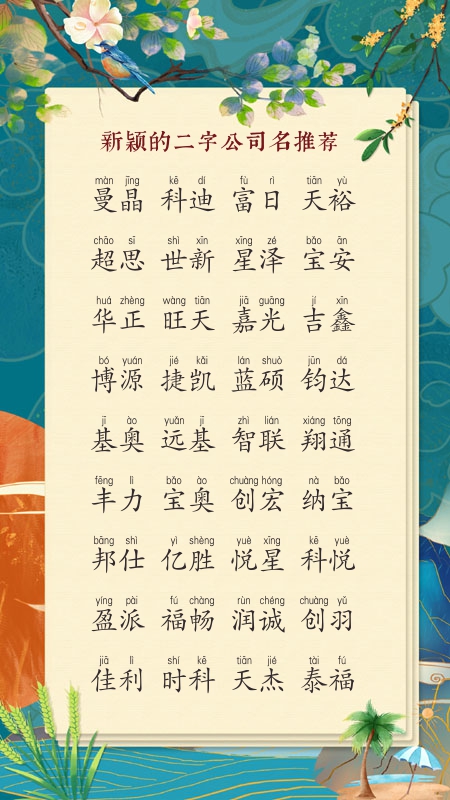 新颖的二字公司名推荐
màn jīng kē dí fù rì tiān yù
曼晶 科迪 富日 天裕
chāo sī shì xīn xīng zé bǎo ān
超思 世新 星泽 宝安
huá zhèng wàng tiān jiā guāng jí xīn
华正 旺天 嘉光 吉鑫
bó yuán jié kǎi lán shuò jūn dá
博源 捷凯 蓝硕 钧达
jī ào yuǎn jī zhì lián xiáng tōng
基奥 远基 智联 翔通
fēng lì bǎo ào chuàng hóng nà bǎo
丰力 宝奥 创宏 纳宝
bāng shì yì shèng yuè xīng kē yuè
邦仕 亿胜 悦星 科悦
yíng pài fú chàng rùn chéng chuàng yǔ
盈派 福畅 润诚 创羽
jiā lì shí kē tiān jié tài fú
佳利 时科 天杰 泰福